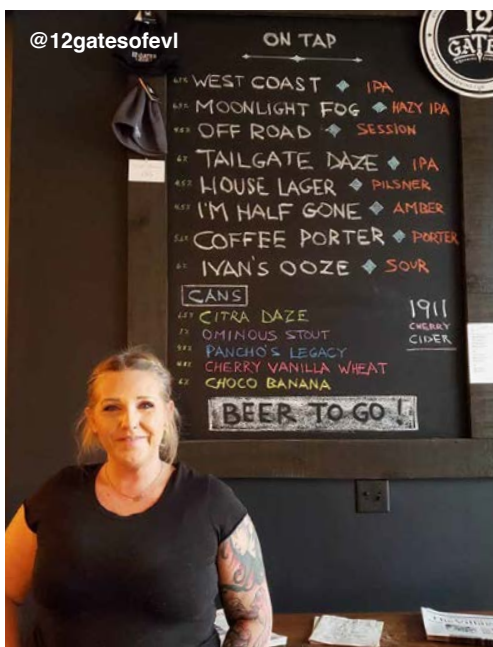 @12gatesofevl
ON TAP
WEST COAST IPA
MOONLIGHT FOG HAZY IPA
OFF ROAD SESSION
6% TAILGATE DAZE IPA
HOUSE LAGER PILSNER
I'M HALF GONE AMBER
COFFEE PORTER PORTER
IVAN'S OOZE SOUR
CANS
CITRA DAZE
OMINOUS STOUT
PANCHO'S LEGACY
CHERRY VANILLA WHEAT
CHOCO BANANA
1911
CHERRY
CIDER
BEER TO GO!
12
GATES